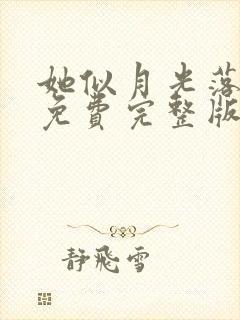 她似月光落
免费完整版
静飛雪